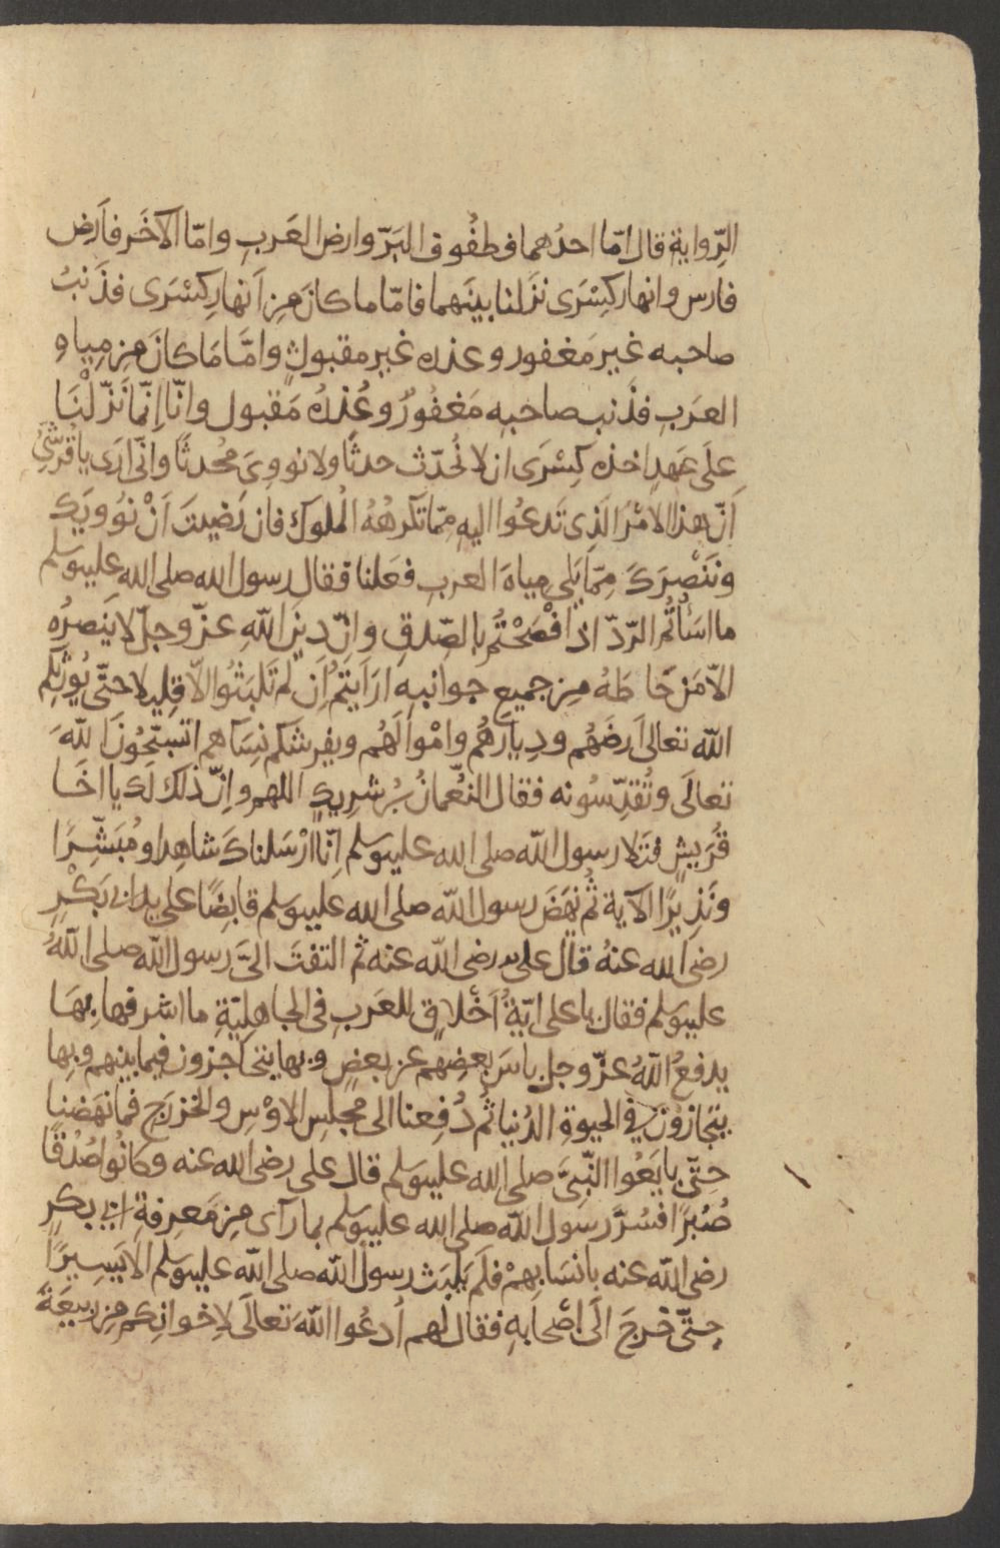 الرِّواية قال امّا احدُهما فطفُوف البَرّ وارض العَربِ وامّا الآخَر فاَرض
فارس وانهار كِسْرَى نَزَلنا بينَهما فامّا ما كانَ مِن اَنهارِ كِسْرَى فذَنبُ
صاحبه غير مَغفور وعذره غير مقبولٍ وامَّا مَا كانَ مِن مِياه
العرَبِ فذَنب صاحبِه مَغفُورٌ وعُذرُهُ مَقبول وانّا اِنّما نَزَلْنَا
علَى عَهدٍ اخذه كِسْرَى ان لا نُحدّث حدثًا ولا نووِىَ مُحدثًا وانّى ارَى يا قُرشِىُّ
اَنّ هذا الامْرَ الّذِى تَدعُوا اليهِ ممّا تكرهُهُ الملُوك فان رَضِيتَ اَنْ نُوويَك
ونَنْصرَكَ مِمّا يَلى مِياهَ العربِ فعَلنا فقال رسول الله صلى الله عليه وسلم
ما اسَأتُم الرّدّ اذا فْصَحْتُم بالصّدقِ وانّ دينَ اللهِ عزّ وجلّ لا يَنصرُه
الاّ مَن حَاطَهُ مِن جميع جوانبِه ارَاَيتَم اِن لم تَلبَثُوا الاّ قلِيلا حتّى يُورثكم
الله تعالى اَرضَهُم ودِيارَهُم وامْوالَهُم ويفرشَكم نِسَآهم اتسبّحُونَ اللهَ
تعالَى وتُقدّسُونه فقال النعْمانُ بنُ شريكٍ اللهم وانّ ذلك لَك يا اخَا
قُرَيشٍ فتَلا رسول الله صلى الله عليه وسلم اِنّا ارْسَلناكَ شاهِدا ومُبَشِّرًا
ونَذِيرًا الآية ثُم نهَضَ رسول اللّه صلى الله عليه وسلم قابِضًا على يد ابى بَكْرٍ
رضى الله عنهُ قال على رضى الله عنه ثم التفتَ الىَّ رسول الله صلى اللّهُ
عليه وسلم فقال يا على ايّةُ اَخْلاقٍ للعَربِ فى الجاهِليّةِ ما اشرفها بِهَا
يدفعُ اللهُ عزّ وجل باسَ بعضِهم عن بعضٍ وبها يتحَاجزون فيما بينهم وبِها
يتجازوُنَ فى الحيوةِ الدُنيا ثُم دُفِعنا الى مَجلسِ الاوْسِ والخزرَجِ فما نهَضنا
حتّى بايَعُوا النّبِىَّ صلى الله عليه وسلم قال على رضى الله عنه وكانُوا صُدُقًا
صُبُرًا فسُرَّ رسول الله صلى الله عليه وسلم بما رآى مِن مَعرِفةِ ابى بكرٍ
رضى الله عنه بانسَابِهِمْ فلَم يَلبَث رسول الله صلى الله عليه وسلم الا يَسِيرًا
حتّى خرجَ الَى اصْحابهِ فقال لهم اُدعُوا اللهَ تعالَى لاِخوانِكم مِن ربيعَةَ